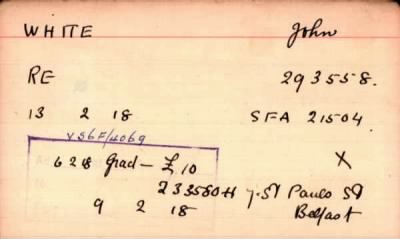 WHITE John
RE 293558.
13 2 18 SFA 21504.
VS6F/4069
628 Grad - £10 X
233580H 7. St Pauls St
9 2 18 Belfast